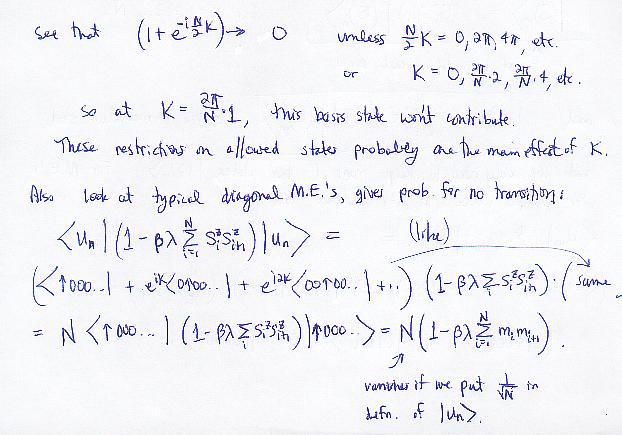 see that (1+e^{-i\frac{N}{2}K}) → 0 unless \frac{N}{2}K = 0, 2π, 4π, etc.
or K = 0, \frac{2π}{N}·2, \frac{2π}{N}·4, etc.
so at K = \frac{2π}{N}·1, this basis state won't contribute.
These restrictions on allowed states probabley are the main effect of K.
Also look at typical diagonal M.E.'s, gives prob. for no transition:
<u_n|(1-βλ \sum_{i=1}^{N} S_i^z S_{i+1}^z)|u_n> = (like)
(<↑000..| + e^{iK}<0↑00..| + e^{i2K}<00↑00..| +..) (1-βλ \sum_i S_i^z S_{i+1}^z)·(same
= N <↑000...| (1-βλ \sum_i S_i^z S_{i+1}^z)|↑000..> = N(1-βλ \sum_{i=1}^{N} m_i m_{i+1}).
vanishes if we put \frac{1}{\sqrt{N}} in
defn. of |u_n>.